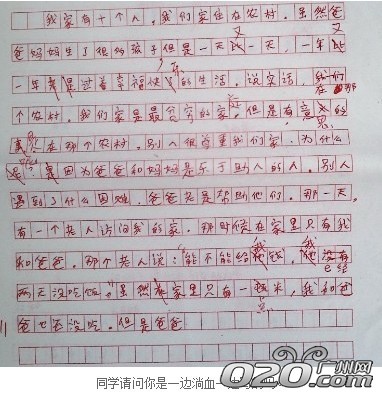 我家有十个人，我们家住在农村。虽然爸
爸妈妈生了很多孩子但是一天又一天，一年又
一年都是过着幸福快乐的生活。说实话，我们在那
个农村。我们家是最穷的家庭。但是有意思的
是在那个农村。别人很尊重我们家。为什么
呢？是因为爸爸和妈妈是乐于助人的人。别人
遇到了什么困难，爸爸老是帮助他们。那一天，
有一个老人访问我的家。那时候在家里只有我
和爸爸。那个老人说：“能不能给我钱，我已经
两天没吃饭。”虽然家里只有一点米，我和爸
爸也还没吃。但是爸爸
同学请问你是一边淌血一
020广州网